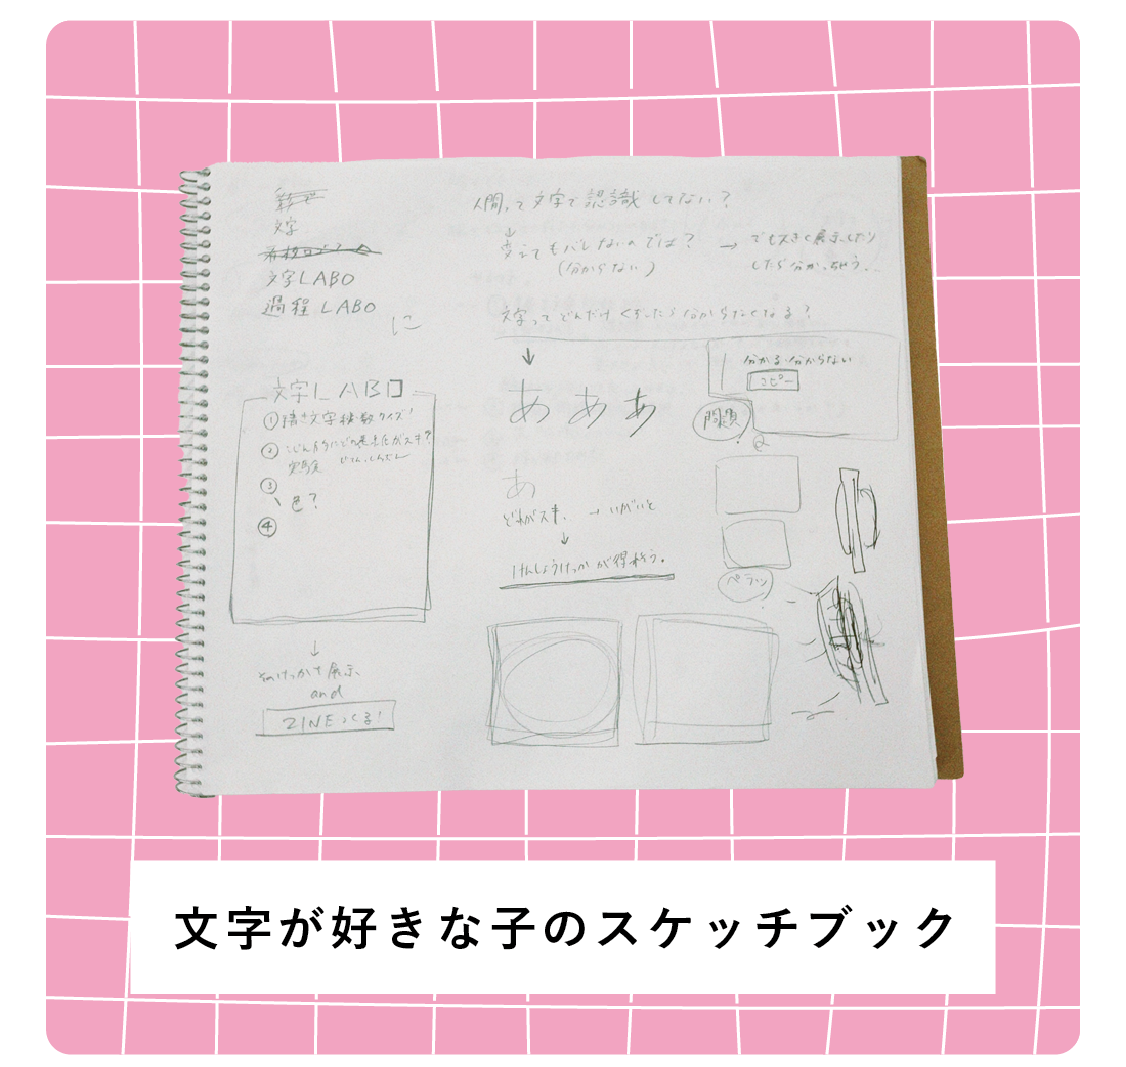 文字
文字LABO
過程LABO
に
文字LABO
①書き文字 画数クイズ!
②
実験
③
色?
④
↓
展示
and
ZINEつくる!
人間って文字で認識してない?
↓
変えてもバレないのでは? → でも大きく展示したり
(分からない) したら分かっちゃう...
文字ってどんだけくずしたら分からなくなる?
↓
あ あ ぁ
分かる分からない
コピー
問題
あ
どれがスキ、→いがいと
↓
けんしょうけっか が得れそう。
ペラッ
文字が好きな子のスケッチブック